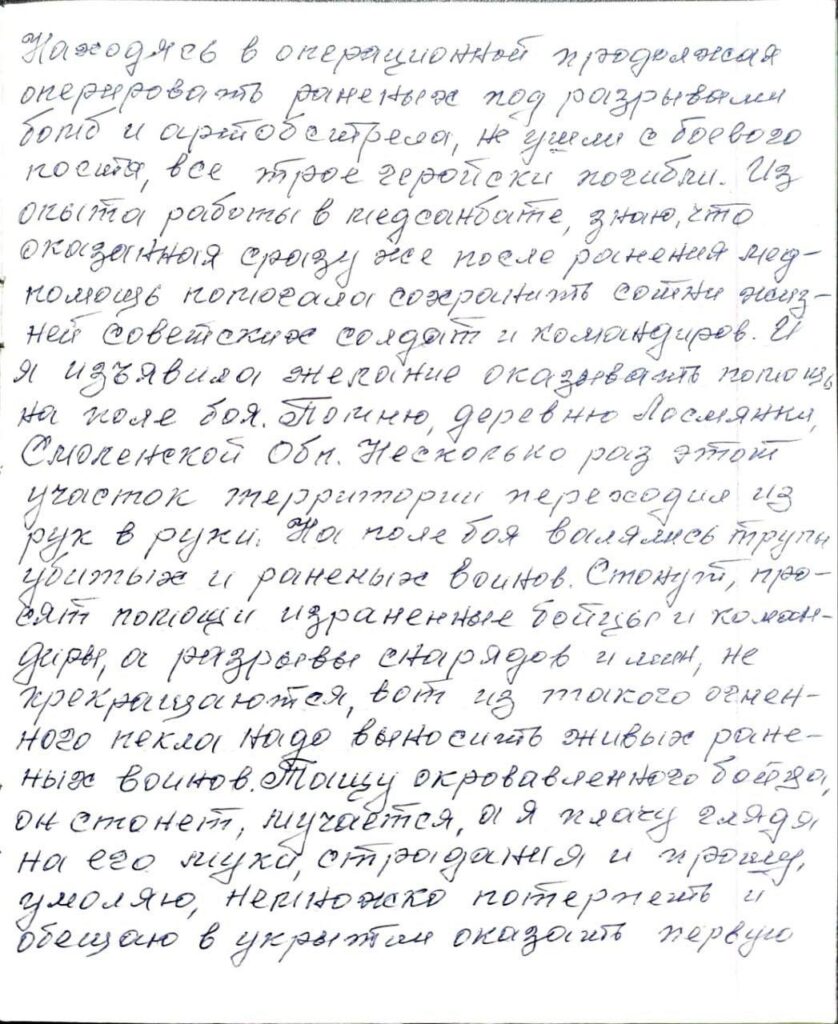 Находясь в операционной продолжая
оперировать раненых под разрывами
бомб и артобстрела, не ушли с боевого
поста, все трое геройски погибли. Из
опыта работы в медсанбате, знаю, что
оказанная сразу же после ранения мед-
помощь помогала сохранить сотни жиз-
ней советских солдат и командиров. И
я изъявила желание оказывать помощь
на поле боя. Помню, деревню Лосмянки,
Смоленской Обл. Несколько раз этот
участок территории переходил из
рук в руки. На поле боя валялись трупы
убитых и раненых воинов. Стонут, про-
сят помощи израненные бойцы и коман-
диры, а разрывы снарядов и мин, не
прекращаются, вот из такого огнен-
ного пекла надо выносить живых ране-
ных воинов. Тащу окровавленного бойца,
он стонет, мучается, а я плачу глядя
на его муки, страдания и прошу,
умоляю, немножко потерпеть и
обещаю в укрытии оказать первую